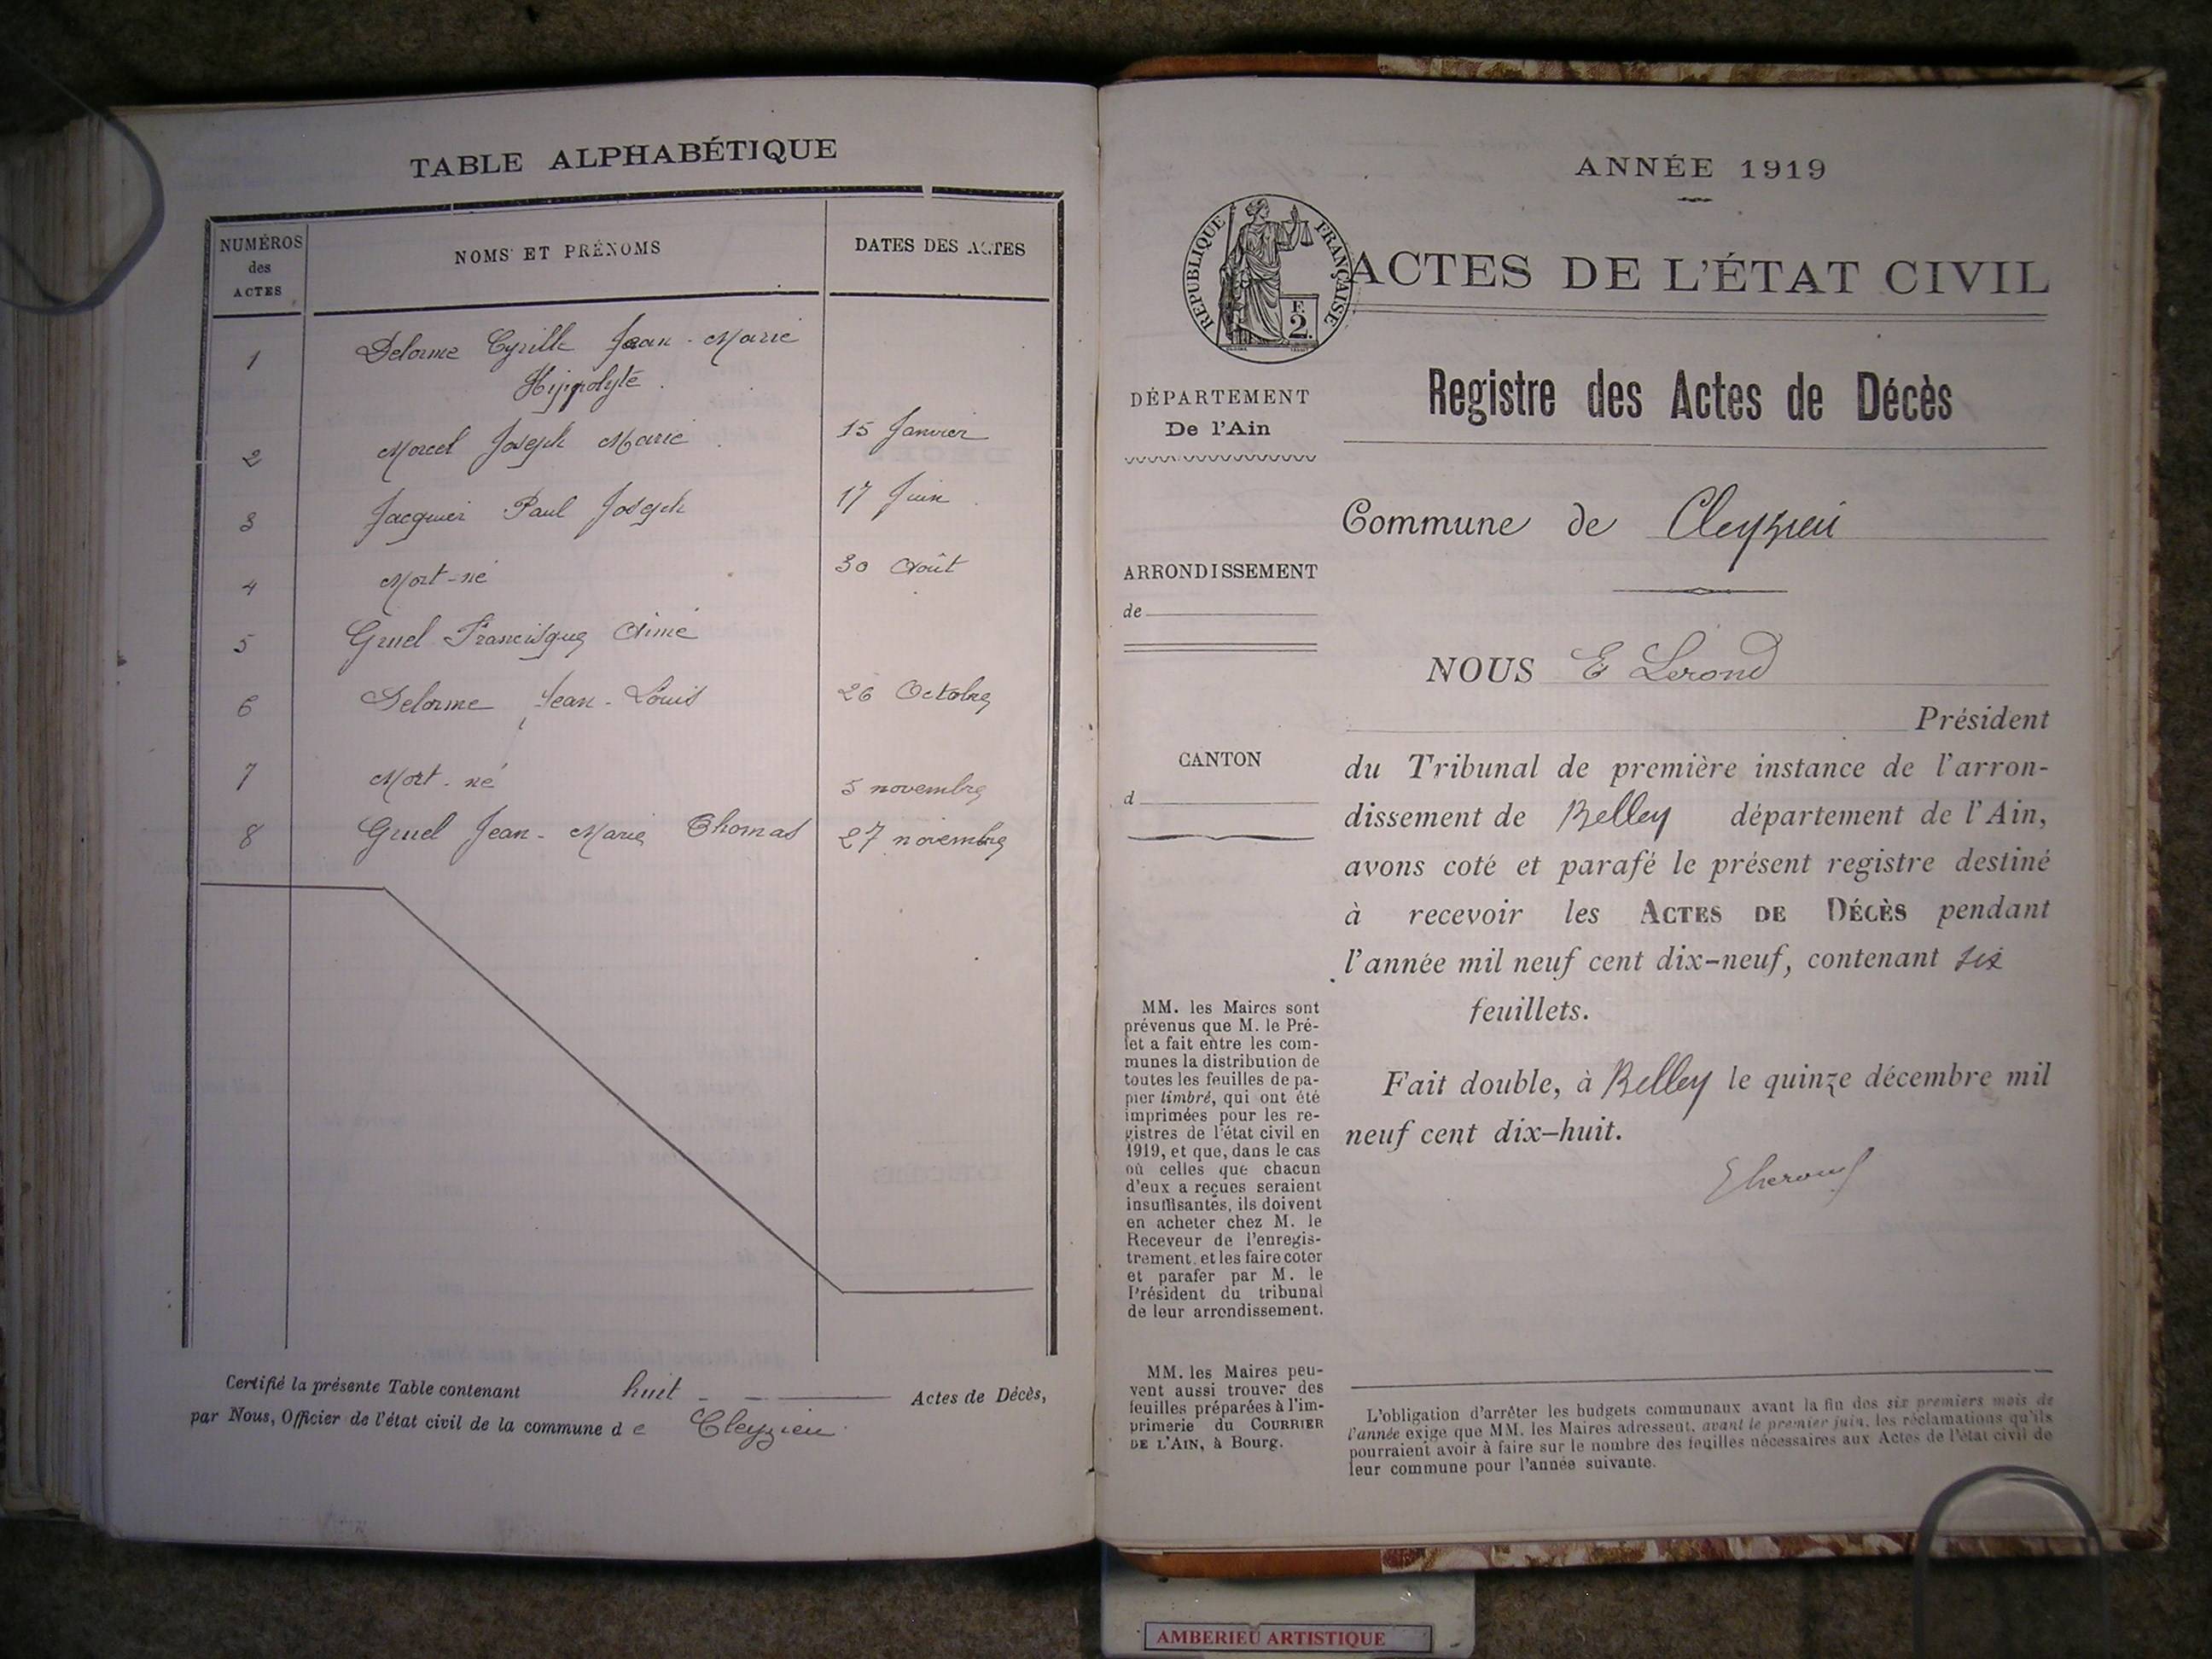 TABLE ALPHABÉTIQUE
NUMÉROS des ACTES
NOMS ET PRÉNOMS
DATES DES ACTES
1 Delorme Cyrille Jean-Marie
Hippolyte
2 Morcel Joseph Marie 15 Janvier
3 Jacquier Paul Joseph 17 Juin
4 Mort-né 30 Août
5 Gruel Francisque Aimé
6 Delorme Jean-Louis 26 Octobre
7 Mort-né 5 novembre
8 Gruel Jean-Marie Thomas 27 novembre
Certifié la présente Table contenant huit Actes de Décès,
par Nous, Officier de l'état civil de la commune de Cleyzieu
ANNÉE 1919
RÉPUBLIQUE FRANÇAISE
F.
2.
ACTES DE L'ÉTAT CIVIL
DÉPARTEMENT
De l'Ain
ARRONDISSEMENT
de
CANTON
d
MM. les Maires sont
prévenus que M. le Pré-
fet a fait entre les com-
munes la distribution de
toutes les feuilles de pa-
pier timbré, qui ont été
imprimées pour les re-
gistres de l'état civil en
1919, et que, dans le cas
où celles que chacun
d'eux a reçues seraient
insuffisantes, ils doivent
en acheter chez M. le
Receveur de l'enregis-
trement, et les faire coter
et parafer par M. le
Président du tribunal
de leur arrondissement.
MM. les Maires peu-
vent aussi trouver des
feuilles préparées à l'im-
primerie du COURRIER
DE L'AIN, à Bourg.
Registre des Actes de Décès
Commune de Cleyzieu
NOUS E Lerond
Président
du Tribunal de première instance de l'arron-
dissement de Belley département de l'Ain,
avons coté et parafé le présent registre destiné
à recevoir les ACTES DE DÉCÈS pendant
l'année mil neuf cent dix-neuf, contenant six
feuillets.
Fait double, à Belley le quinze décembre mil
neuf cent dix-huit.
L'obligation d'arrêter les budgets communaux avant la fin des six premiers mois de
l'année exige que MM. les Maires adressent, avant le premier juin, les réclamations qu'ils
pourraient avoir à faire sur le nombre des feuilles nécessaires aux Actes de l'état civil de
leur commune pour l'année suivante.
AMBERIEU ARTISTIQUE